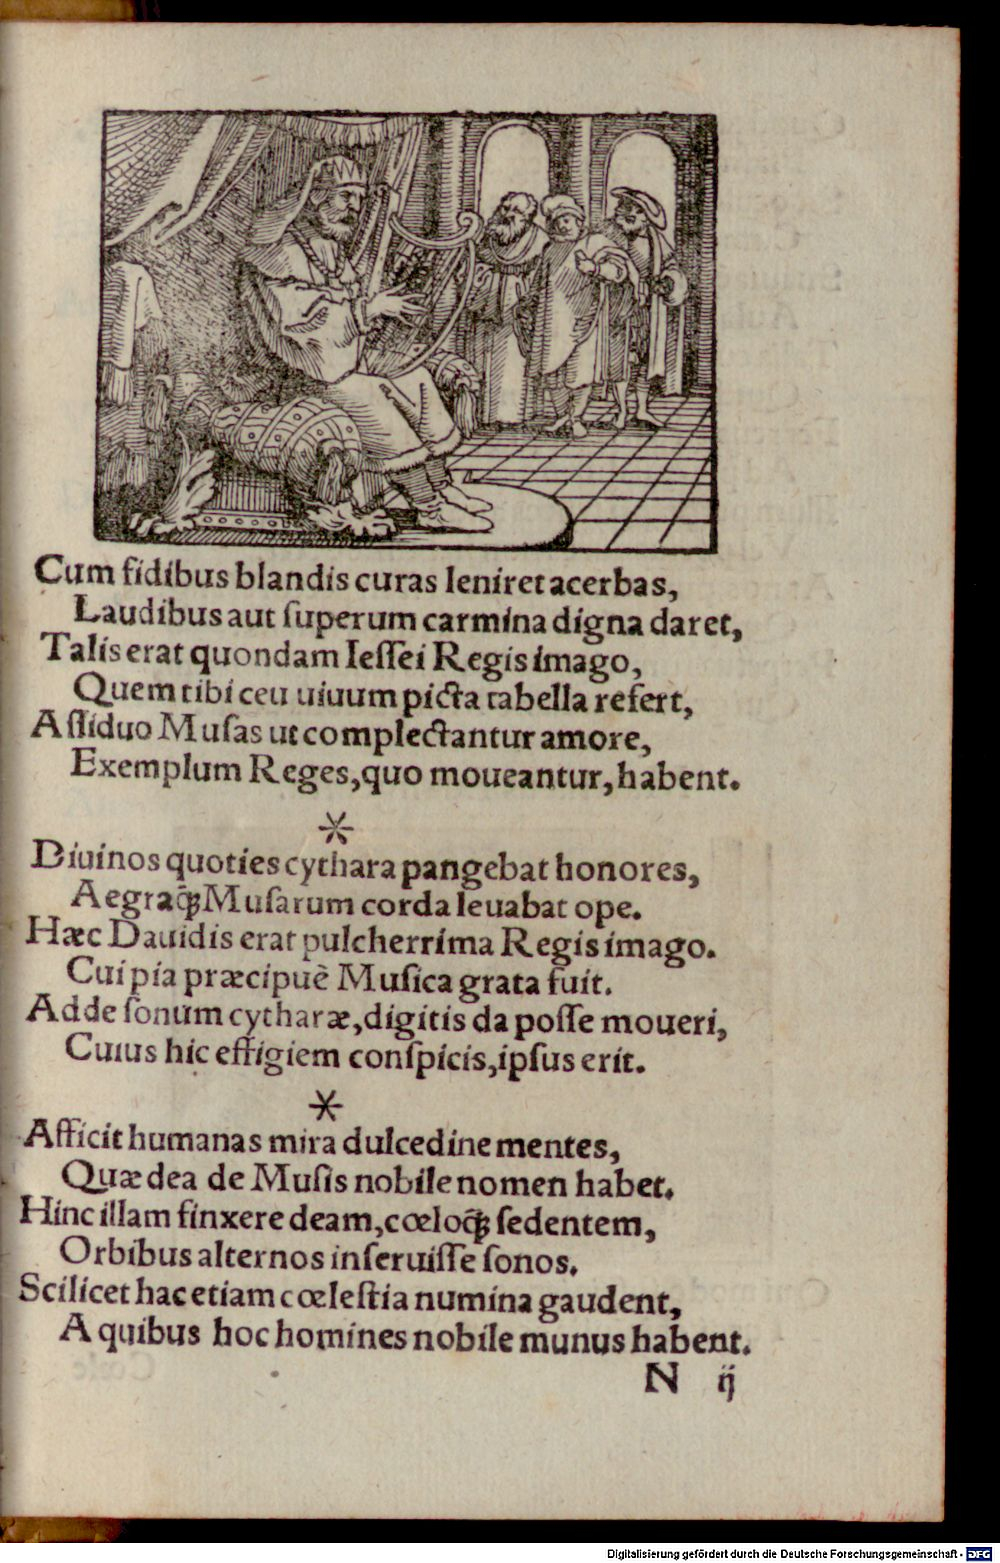 Cum fidibus blandis curas leniret acerbas,
Laudibus aut ſuperum carmina digna daret,
Talis erat quondam Ieſſei Regis imago,
Quem tibi ceu uiuum picta tabella refert,
Aſſiduo Muſas ut complectantur amore,
Exemplum Reges, quo moueantur, habent.
*
Diuinos quoties cythara pangebat honores,
Aegraq́; Muſarum corda leuabat ope.
Hæc Dauidis erat pulcherrima Regis imago.
Cui pia præcipuè Muſica grata fuit.
Adde ſonum cytharæ, digitis da poſſe moueri,
Cuius hic effigiem conſpicis, ipſus erit.
*
Afficit humanas mira dulcedine mentes,
Quæ dea de Muſis nobile nomen habet.
Hinc illam finxere deam, cœloq́; ſedentem,
Orbibus alternos inſeruiſſe ſonos.
Scilicet hac etiam cœleſtia numina gaudent,
A quibus hoc homines nobile munus habent.
N ij
Digitalisierung gefördert durch die Deutsche Forschungsgemeinschaft - DFG